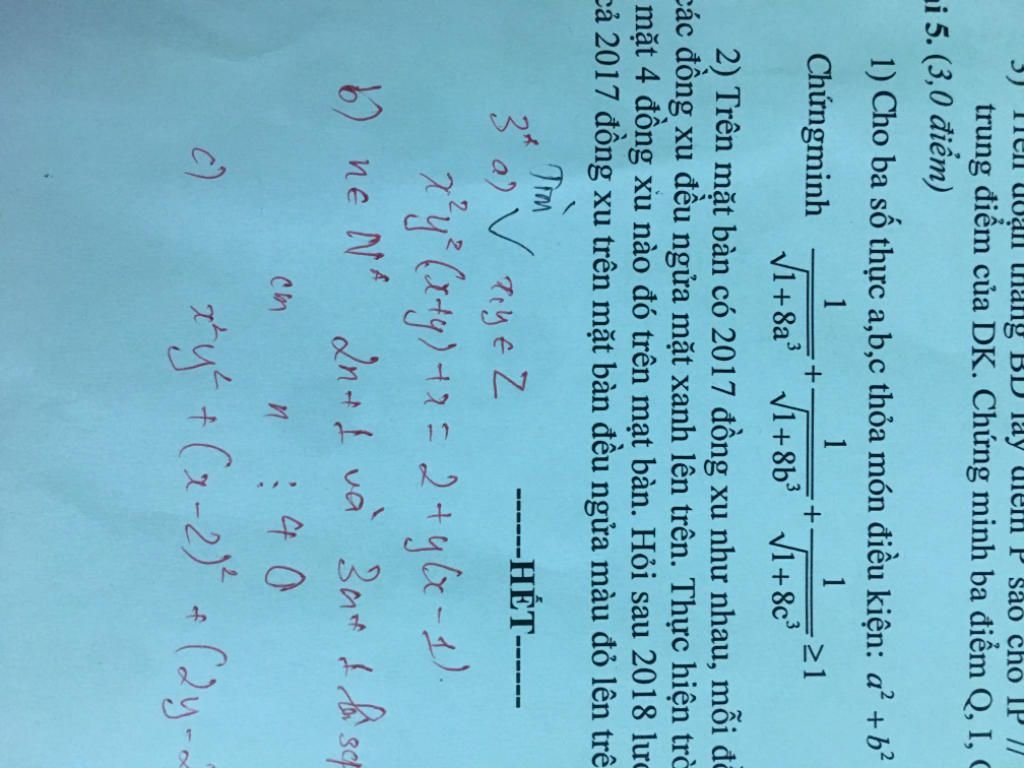 3) Trên đoạn thẳng BD lấy điểm P sao cho IP //
trung điểm của DK. Chứng minh ba điểm Q, I,
ài 5. (3,0 điểm)
1) Cho ba số thực a,b,c thỏa món điều kiện: a² + b²
Chứngminh 1/√1+8a³ + 1/√1+8b³ + 1/√1+8c³ ≥ 1
2) Trên mặt bàn có 2017 đồng xu như nhau, mỗi
các đồng xu đều ngửa mặt xanh lên trên. Thực hiện trò
mặt 4 đồng xu nào đó trên mạt bàn. Hỏi sau 2018
cả 2017 đồng xu trên mặt bàn đều ngửa màu đỏ lên
------HẾT------
Tìm
3* a) √ x, y ∈ Z
x²y²(x+y) + x = 2 + y(x - 1).
b) n ∈ N* 2n+1 và 3n+1 là scp
cm n ⋮ 40
c) x²y² + (x - 2)² + (2y -